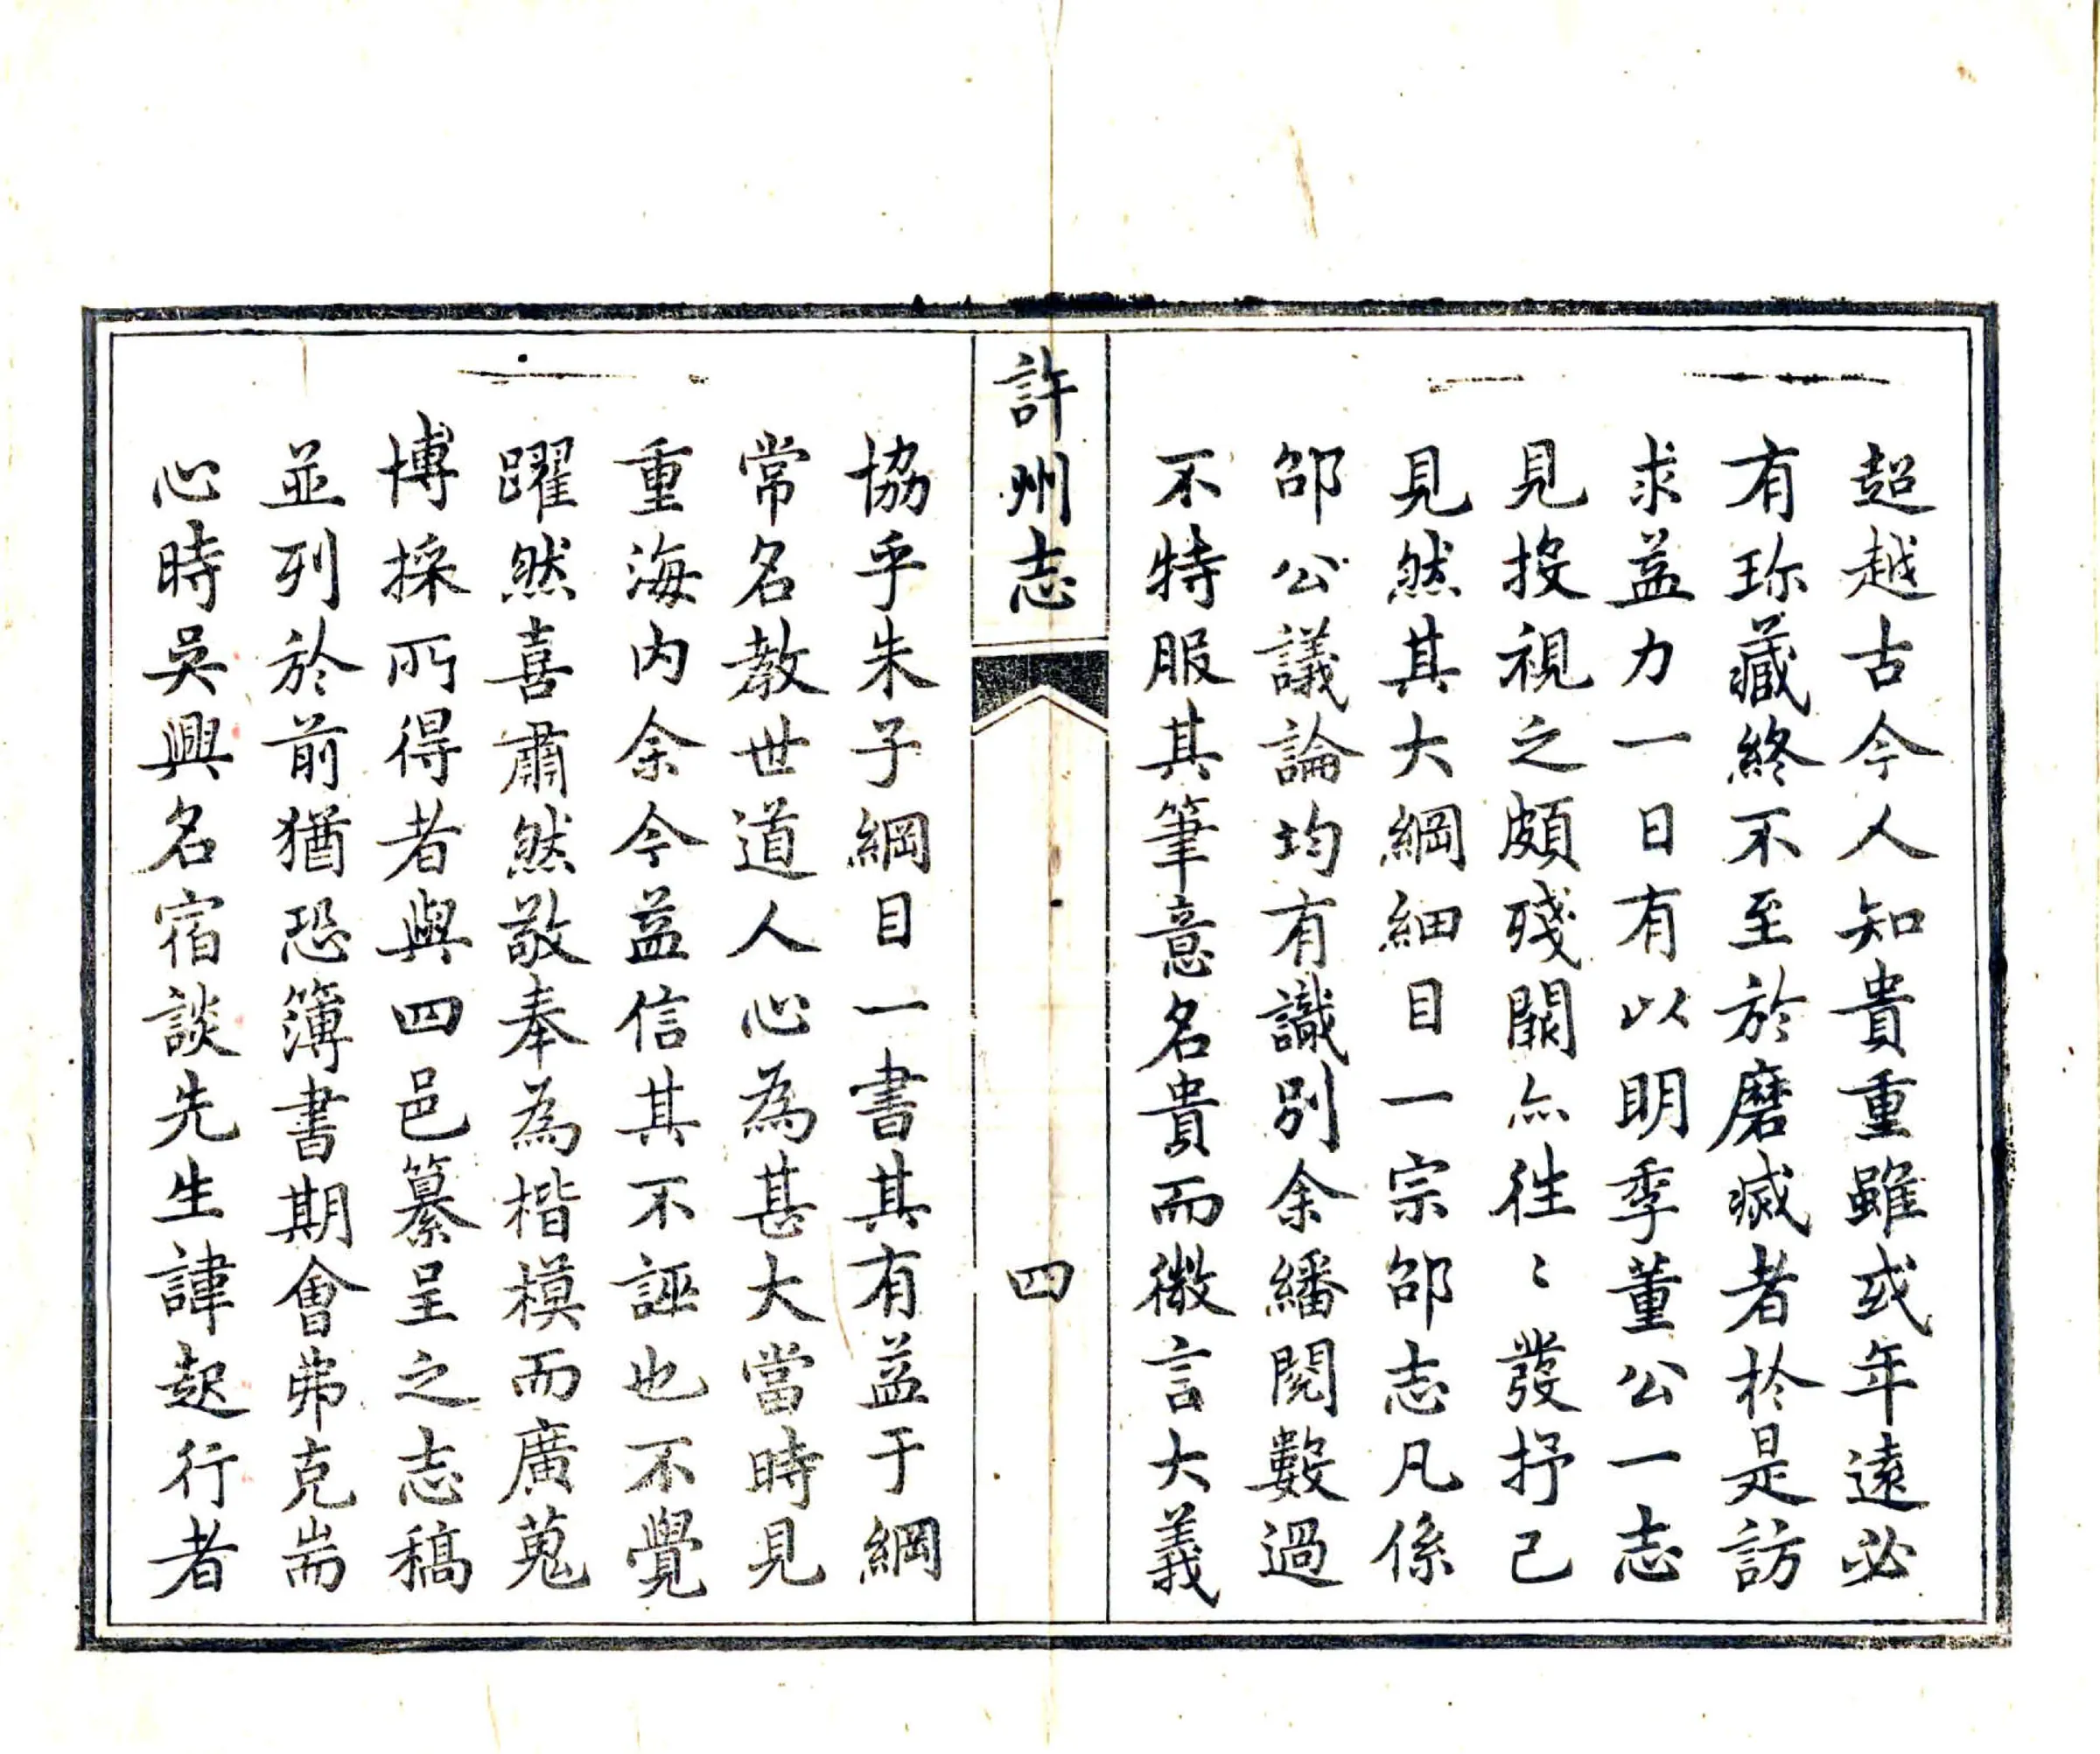 超越古今人知貴重雖或年遠必
有珎藏終不至於磨滅者扵是訪
求益力一日有以明季董公一志
見投視之頗殘闕亦徃〻發抒己
見然其大綱細目一宗邵志凡係
邵公議論均有識別余繙閱數過
不特服其筆意名貴而微言大義
許州志
四
協乎朱子綱目一書其有益于綱
常名教世道人心為甚大當時見
重海内余今益信其不誣也不覺
躍然喜肅然敬奉為楷模而廣蒐
博採所得者與四邑纂呈之志稿
並列於前猶恐簿書期會弗克耑
心時吳興名宿談先生諱起行者